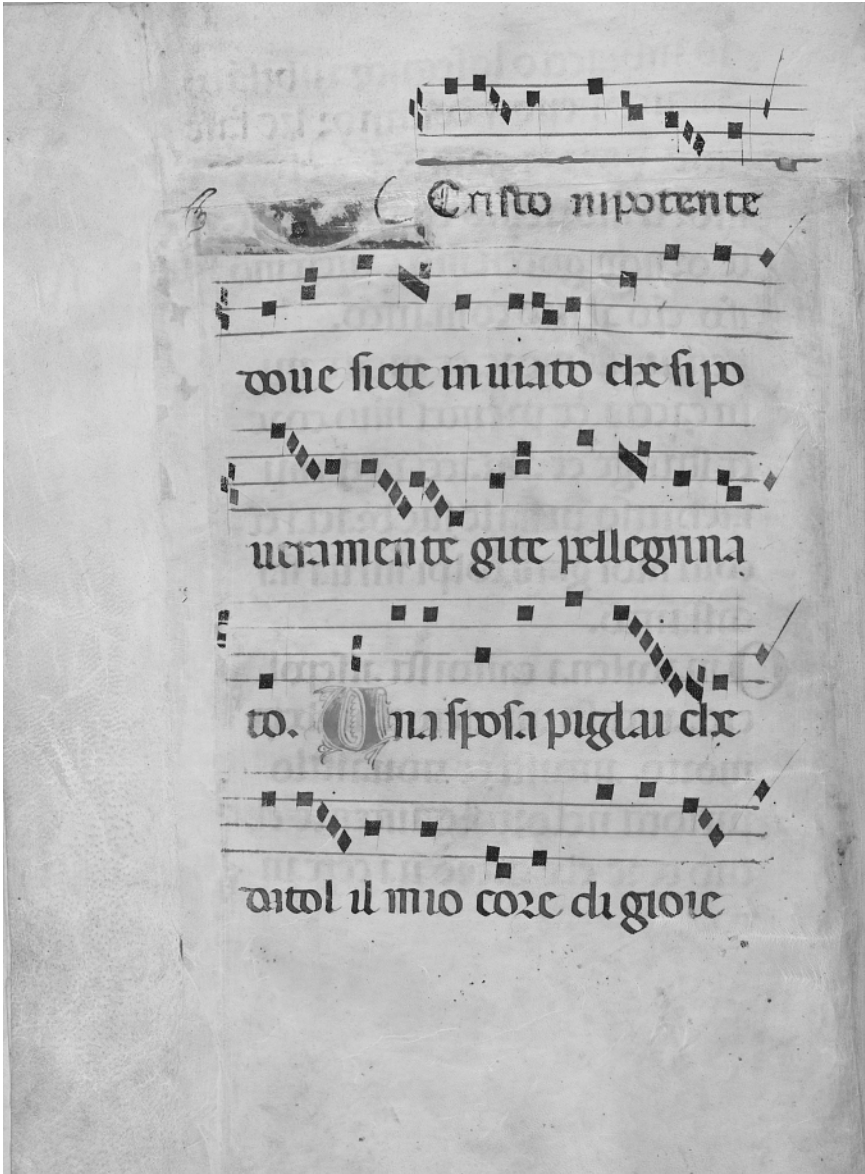 Cristo nipotente
doue siete inuiato che si po
ueramente gite pellegrina
to. Una sposa piglai che
ditol il mio core di gioie